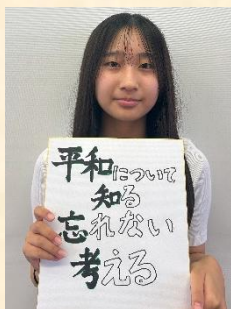 平和について
知る
忘れない
考える